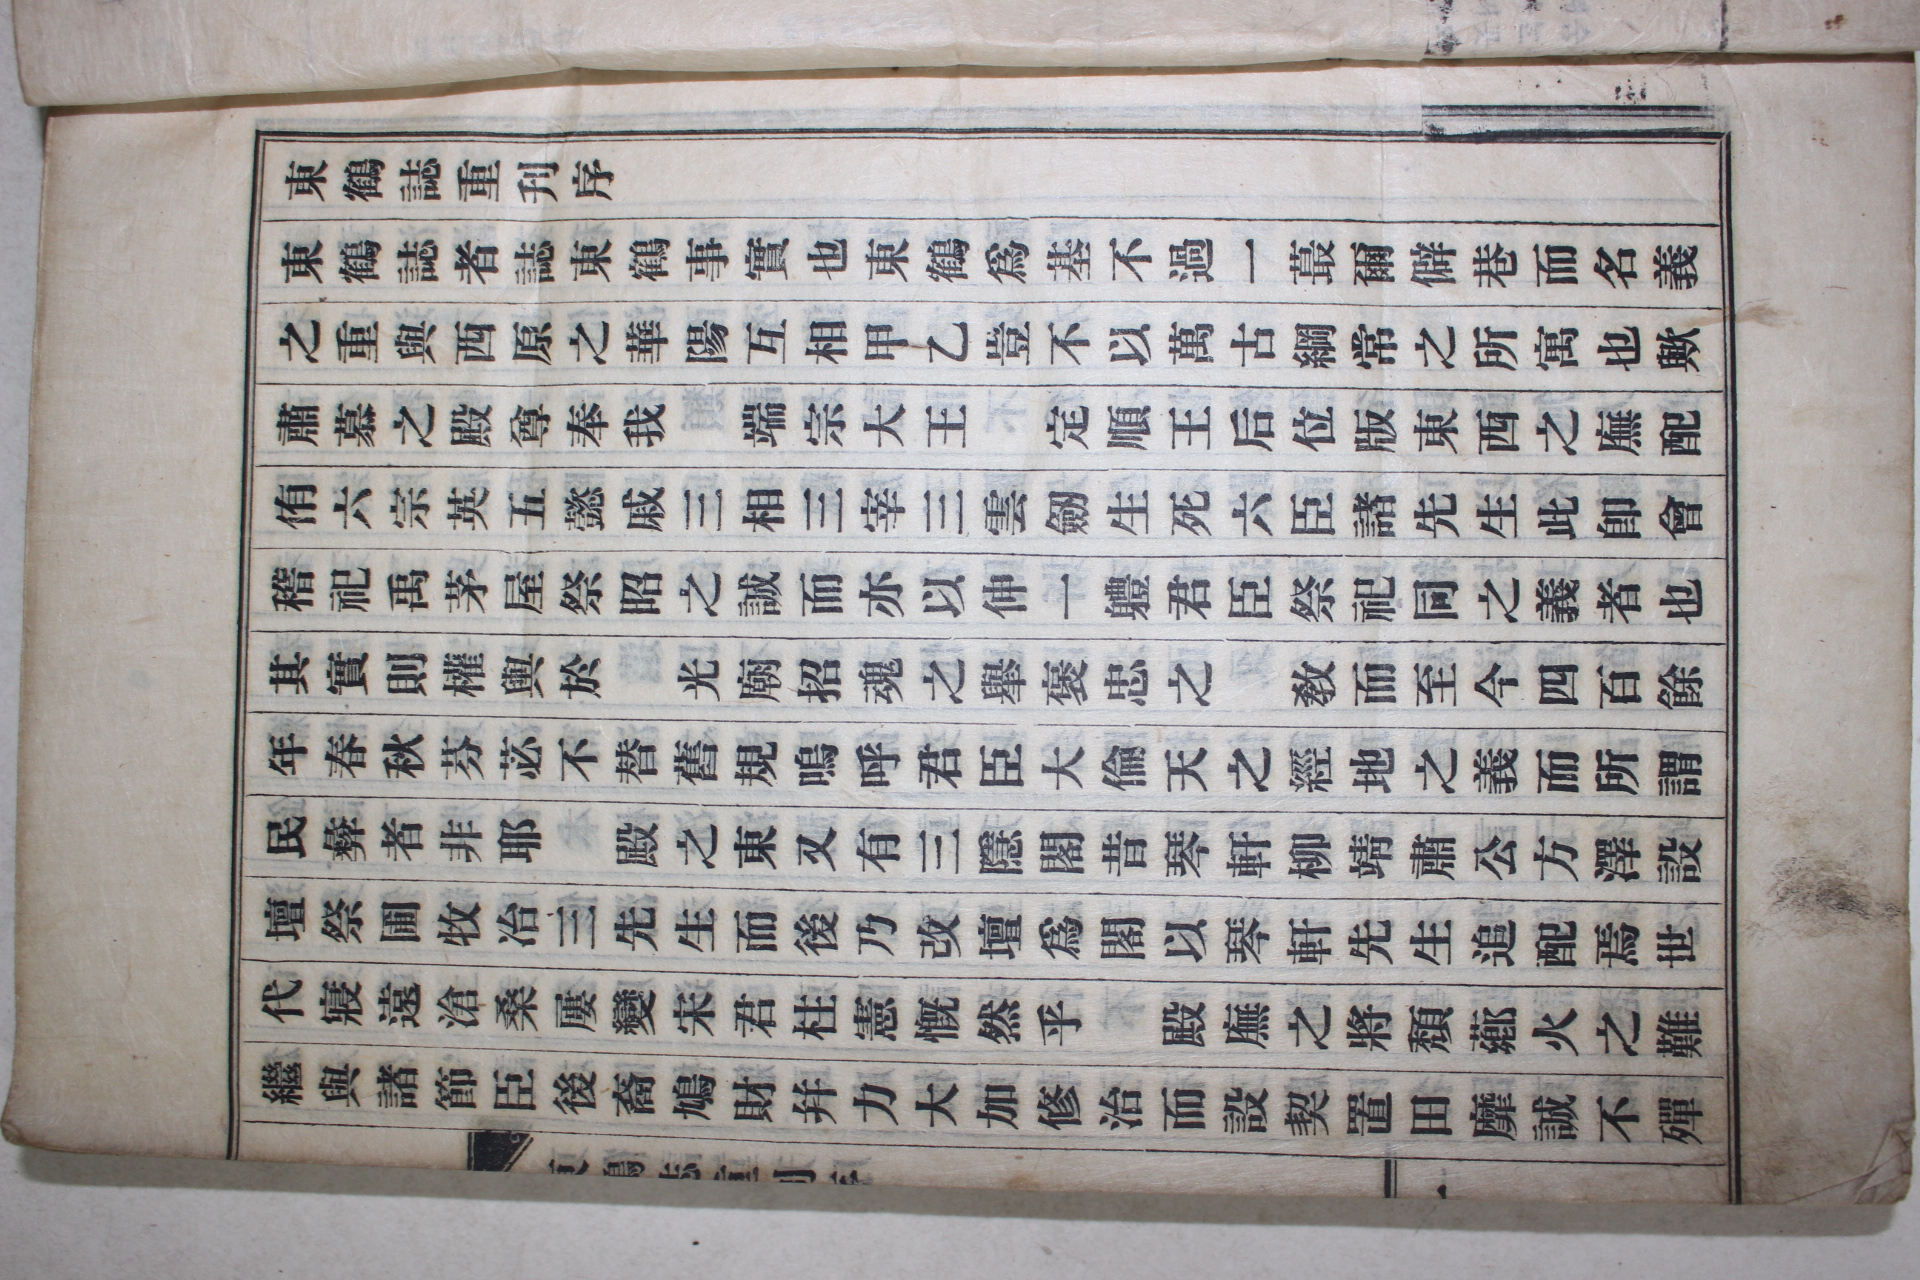 東鶴誌重刊序
東鶴誌者誌東鶴事實也東鶴爲基不過一蕞爾僻巷而名義
之重與西原之華陽互相甲乙豈不以萬古綱常之所寓也歟
肅慕之殿尊奉我 端宗大王 定順王后位版東西之廡配
侑六宗英五懿戚三相三宰三雲劒生死六臣諸先生此卽會
稽祀禹茅屋祭昭之誠而亦以伸一軆君臣祭祀同之義者也
其實則權輿於 光廟招魂之擧褒忠之 敎而至今四百餘
年春秋芬苾不替舊規嗚呼君臣大倫天之經地之義而所謂
民彜者非耶 殿之東又有三隱閣昔琴軒柳靖肅公方澤設
壇祭圃牧冶三先生而後乃改壇爲閣以琴軒先生追配焉世
代寢遠滄桑屢變宋君柱憲慨然乎 殿廡之將頹薌火之難
繼與諸節臣後裔鳩財幷力大加修治而設契置田靡誠不殫
東鶴誌重刊序